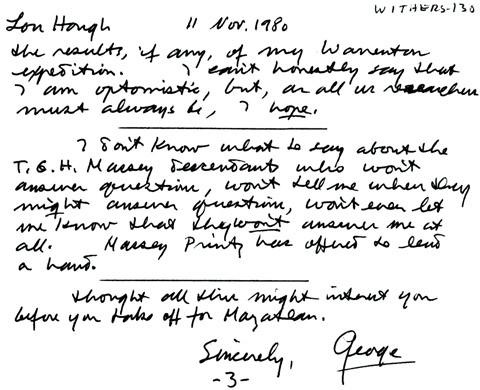 WITHERS-130
Lon Hough 11 Nov. 1980
the results, if any, of my Warrenton
expedition. I can't honestly say that
I am optomistic, but, as all us researchers
must always be, I hope.
I don't know what to say about the
T.G.H. Massey descendants who won't
answer question, won't tell me when they
might answer question, won't even let
me know that they won't answer me at
all. Massey Printz has offered to lend
a hand.
Thought all this might interest you
before you take off for Mazatlan.
Sincerely, George
-3-